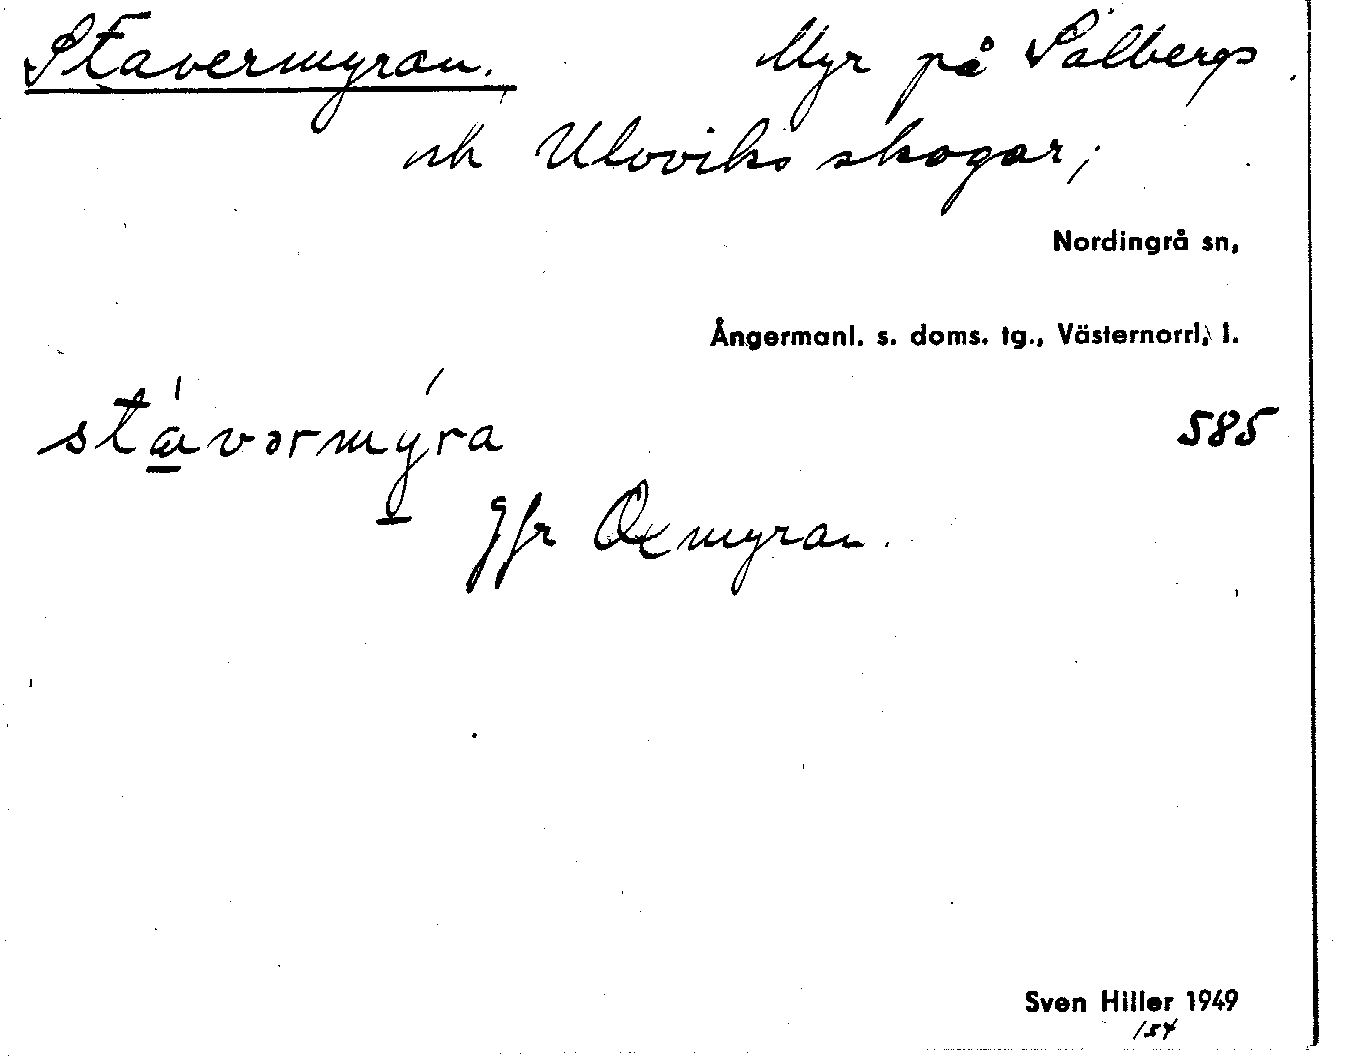 Stavermyran. Myr på Salbergs
och Ulvviks skogar;
Nordingrå sn,
Ångermanl. s. doms. tg., Västernorrl. l.
stávərmýra 585
Jfr Oxmyran.
Sven Hiller 1949
154